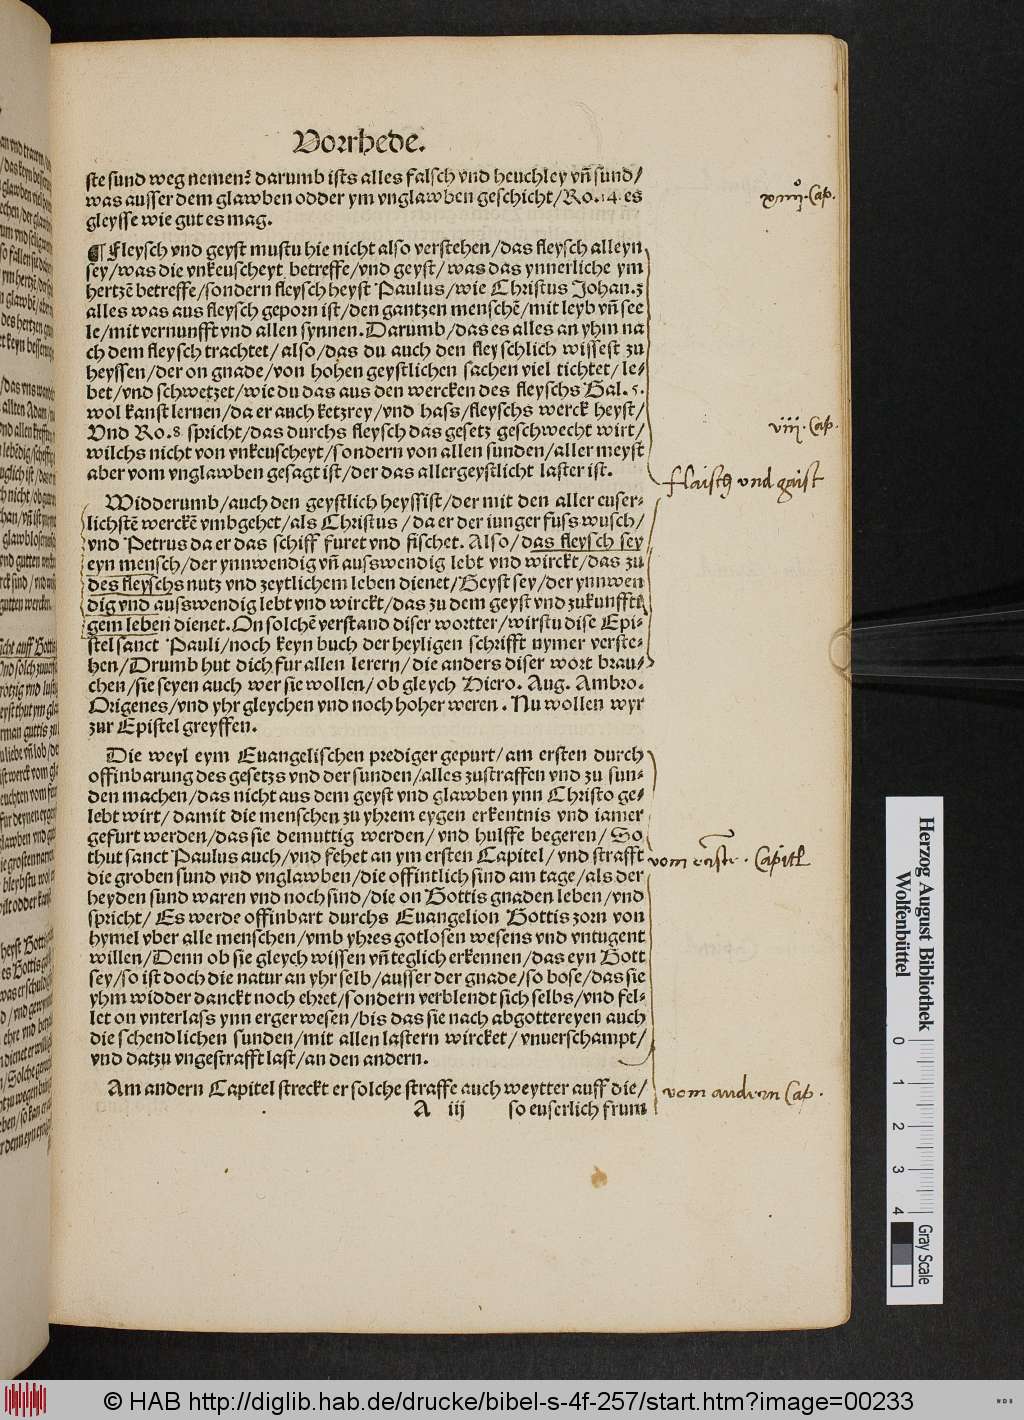 Vorrhede.
ste sund weg nemen? darumb ists alles falsch vnd heuchley vñ sund/
was ausser dem glawben odder ym vnglawben geschicht/Ro.14.es
gleysse wie gut es mag.
¶ Fleysch vnd geyst mustu hie nicht also verstehen/das fleysch alleyn
sey/was die vnkeuscheyt betreffe/vnd geyst/was das ynnerliche ym
hertzē betreffe/sondern fleysch heyst Paulus/wie Christus Johan.3
alles was aus fleysch geporn ist/den gantzen menschē/mit leyb vñ see
le/mit vernunfft vnd allen synnen.Darumb/das es alles an yhm na
ch dem fleysch trachtet/also/das du auch den fleyschlich wissest zu
heyssen/der on gnade/von hohen geystlichen sachen viel tichtet/le-
bet/vnd schwetzet/wie du das aus den wercken des fleyschs Gal.5.
wol kanst lernen/da er auch ketzrey/vnd hass/fleyschs werck heyst/
Vnd Ro.8 spricht/das durchs fleysch das gesetz geschwecht wirt/
wilchs nicht von vnkeuscheyt/sondern von allen sunden/aller meyst
aber vom vnglawben gesagt ist/der das allergeystlicht laster ist.
Widderumb/auch den geystlich heyssist/der mit den aller euser-
lichstē werckē vmbgehet/als Christus/da er der iunger fuss wusch/
vnd Petrus da er das schiff furet vnd fischet. Also/das fleysch sey
eyn mensch/der ynnwendig vñ auswendig lebt vnd wirckt/das zu
des fleyschs nutz vnd zeytlichem leben dienet/Geyst sey/der ynnwen
dig vnd auswendig lebt vnd wirckt/das zu dem geyst vnd zukunfftī
gem leben dienet.On solchē verstand diser wortter/wirstu dise Epi-
stel sanct Pauli/noch keyn buch der heyligen schrifft nymer verste-
hen/Drumb hut dich fur allen lerern/die anders diser wort brau-
chen/sie seyen auch wer sie wollen/ob gleych Hiero. Aug. Ambro.
Origenes/vnd yhr gleychen vnd noch hoher weren. Nu wollen wyr
zur Epistel greyffen.
Die weyl eym Euangelischen prediger gepurt/am ersten durch
offinbarung des gesetzs vnd der sunden/alles zustraffen vnd zu sun-
den machen/das nicht aus dem geyst vnd glawben ynn Christo ge-
lebt wirt/damit die menschen zu yhrem eygen erkentnis vnd iamer
gefurt werden/das sie demuttig werden/vnd hulffe begeren/So
thut sanct Paulus auch/vnd fehet an ym ersten Capitel/vnd strafft
die groben sund vnd vnglawben/die offintlich sind am tage/als der
heyden sund waren vnd noch sind/die on Gottis gnaden leben/vnd
spricht/Es werde offinbart durchs Euangelion Gottis zorn von
hymel vber alle menschen/vmb yhres gotlosen wesens vnd vntugent
willen/Denn ob sie gleych wissen vñ teglich erkennen/das eyn Gott
sey/so ist doch die natur an yhr selb/ausser der gnade/so bose/das sie
yhm widder danckt noch ehret/sondern verblendt sich selbs/vnd fel-
let on vnterlass ynn erger wesen/bis das sie nach abgottereyen auch
die schendlichen sunden/mit allen lastern wircket/vnuerschampt/
vnd datzu vngestrafft last/an den andern.
Am andern Capitel streckt er solche straffe auch weytter auff die/
A iij so euserlich frum
xiiij°.Cap.
viij.Cap.
flaisch vnd gaist
vom erste. Capitl
vom andern Cap.
Herzog August Bibliothek
Wolfenbüttel
0 1 2 3 4
Gray Scale
© HAB http://diglib.hab.de/drucke/bibel-s-4f-257/start.htm?image=00233